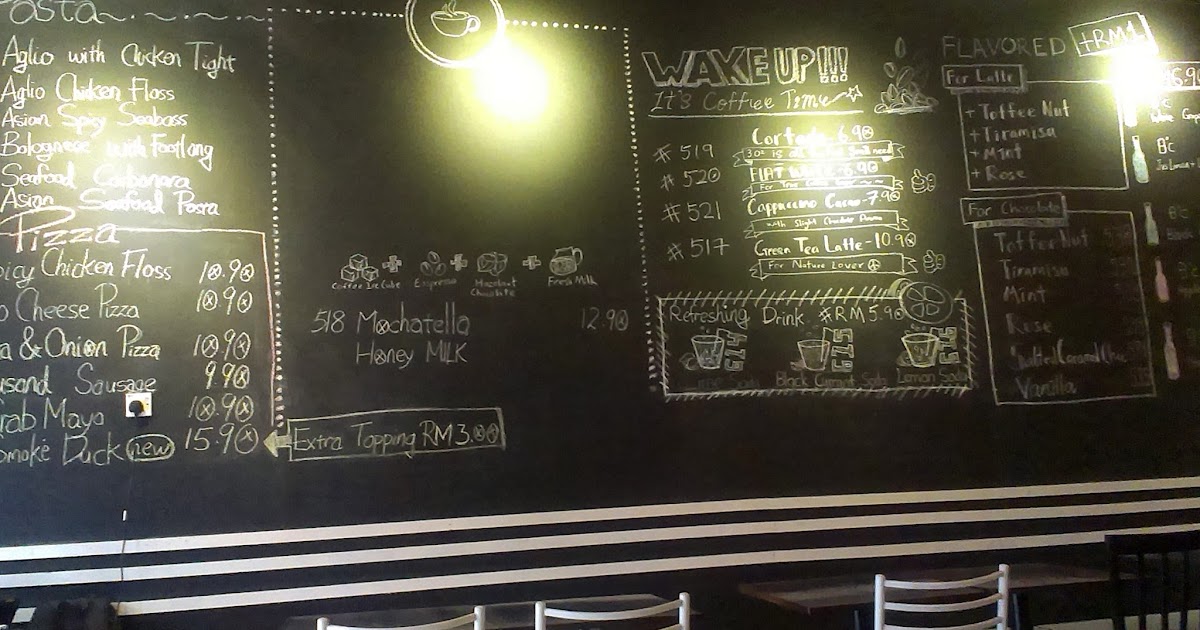 Pasta
Aglio with Chicken Tight
Aglio Chicken Floss
Asian Spicy Seabass
Bolognese with Footlong
Seafood Carbonara
Asian Seafood Pasta
Pizza
Chicken Floss 10.90
Cheese Pizza 10.90
& Onion Pizza 10.90
Sausage 9.90
Mayo 10.90
Duck new 15.90
Extra Topping RM 3.00
Coffee Ice Cube + Espresso + Hazelnut Chocolate + Fresh Milk
518 Mochatella 12.90
Honey MILK
WAKE UP!!!
It's Coffee Time
#519 6.90
#520 FLAT 6.90
#521 Cappuccino Cacao - 7.90
with Slight Chocolate Aroma
#517 Green Tea Latte - 10.90
For Nature Lover
Refreshing Drink #RM 5.90
514 515 516
Soda Black Currant Soda Lemon Soda
FLAVORED +RM1
For Latte
+ Toffee Nut
+ Tiramisu
+ Mint
+ Rose
For Chocolate
Toffee Nut
Tiramisu
Mint
Rose
Salted Caramel
Vanilla